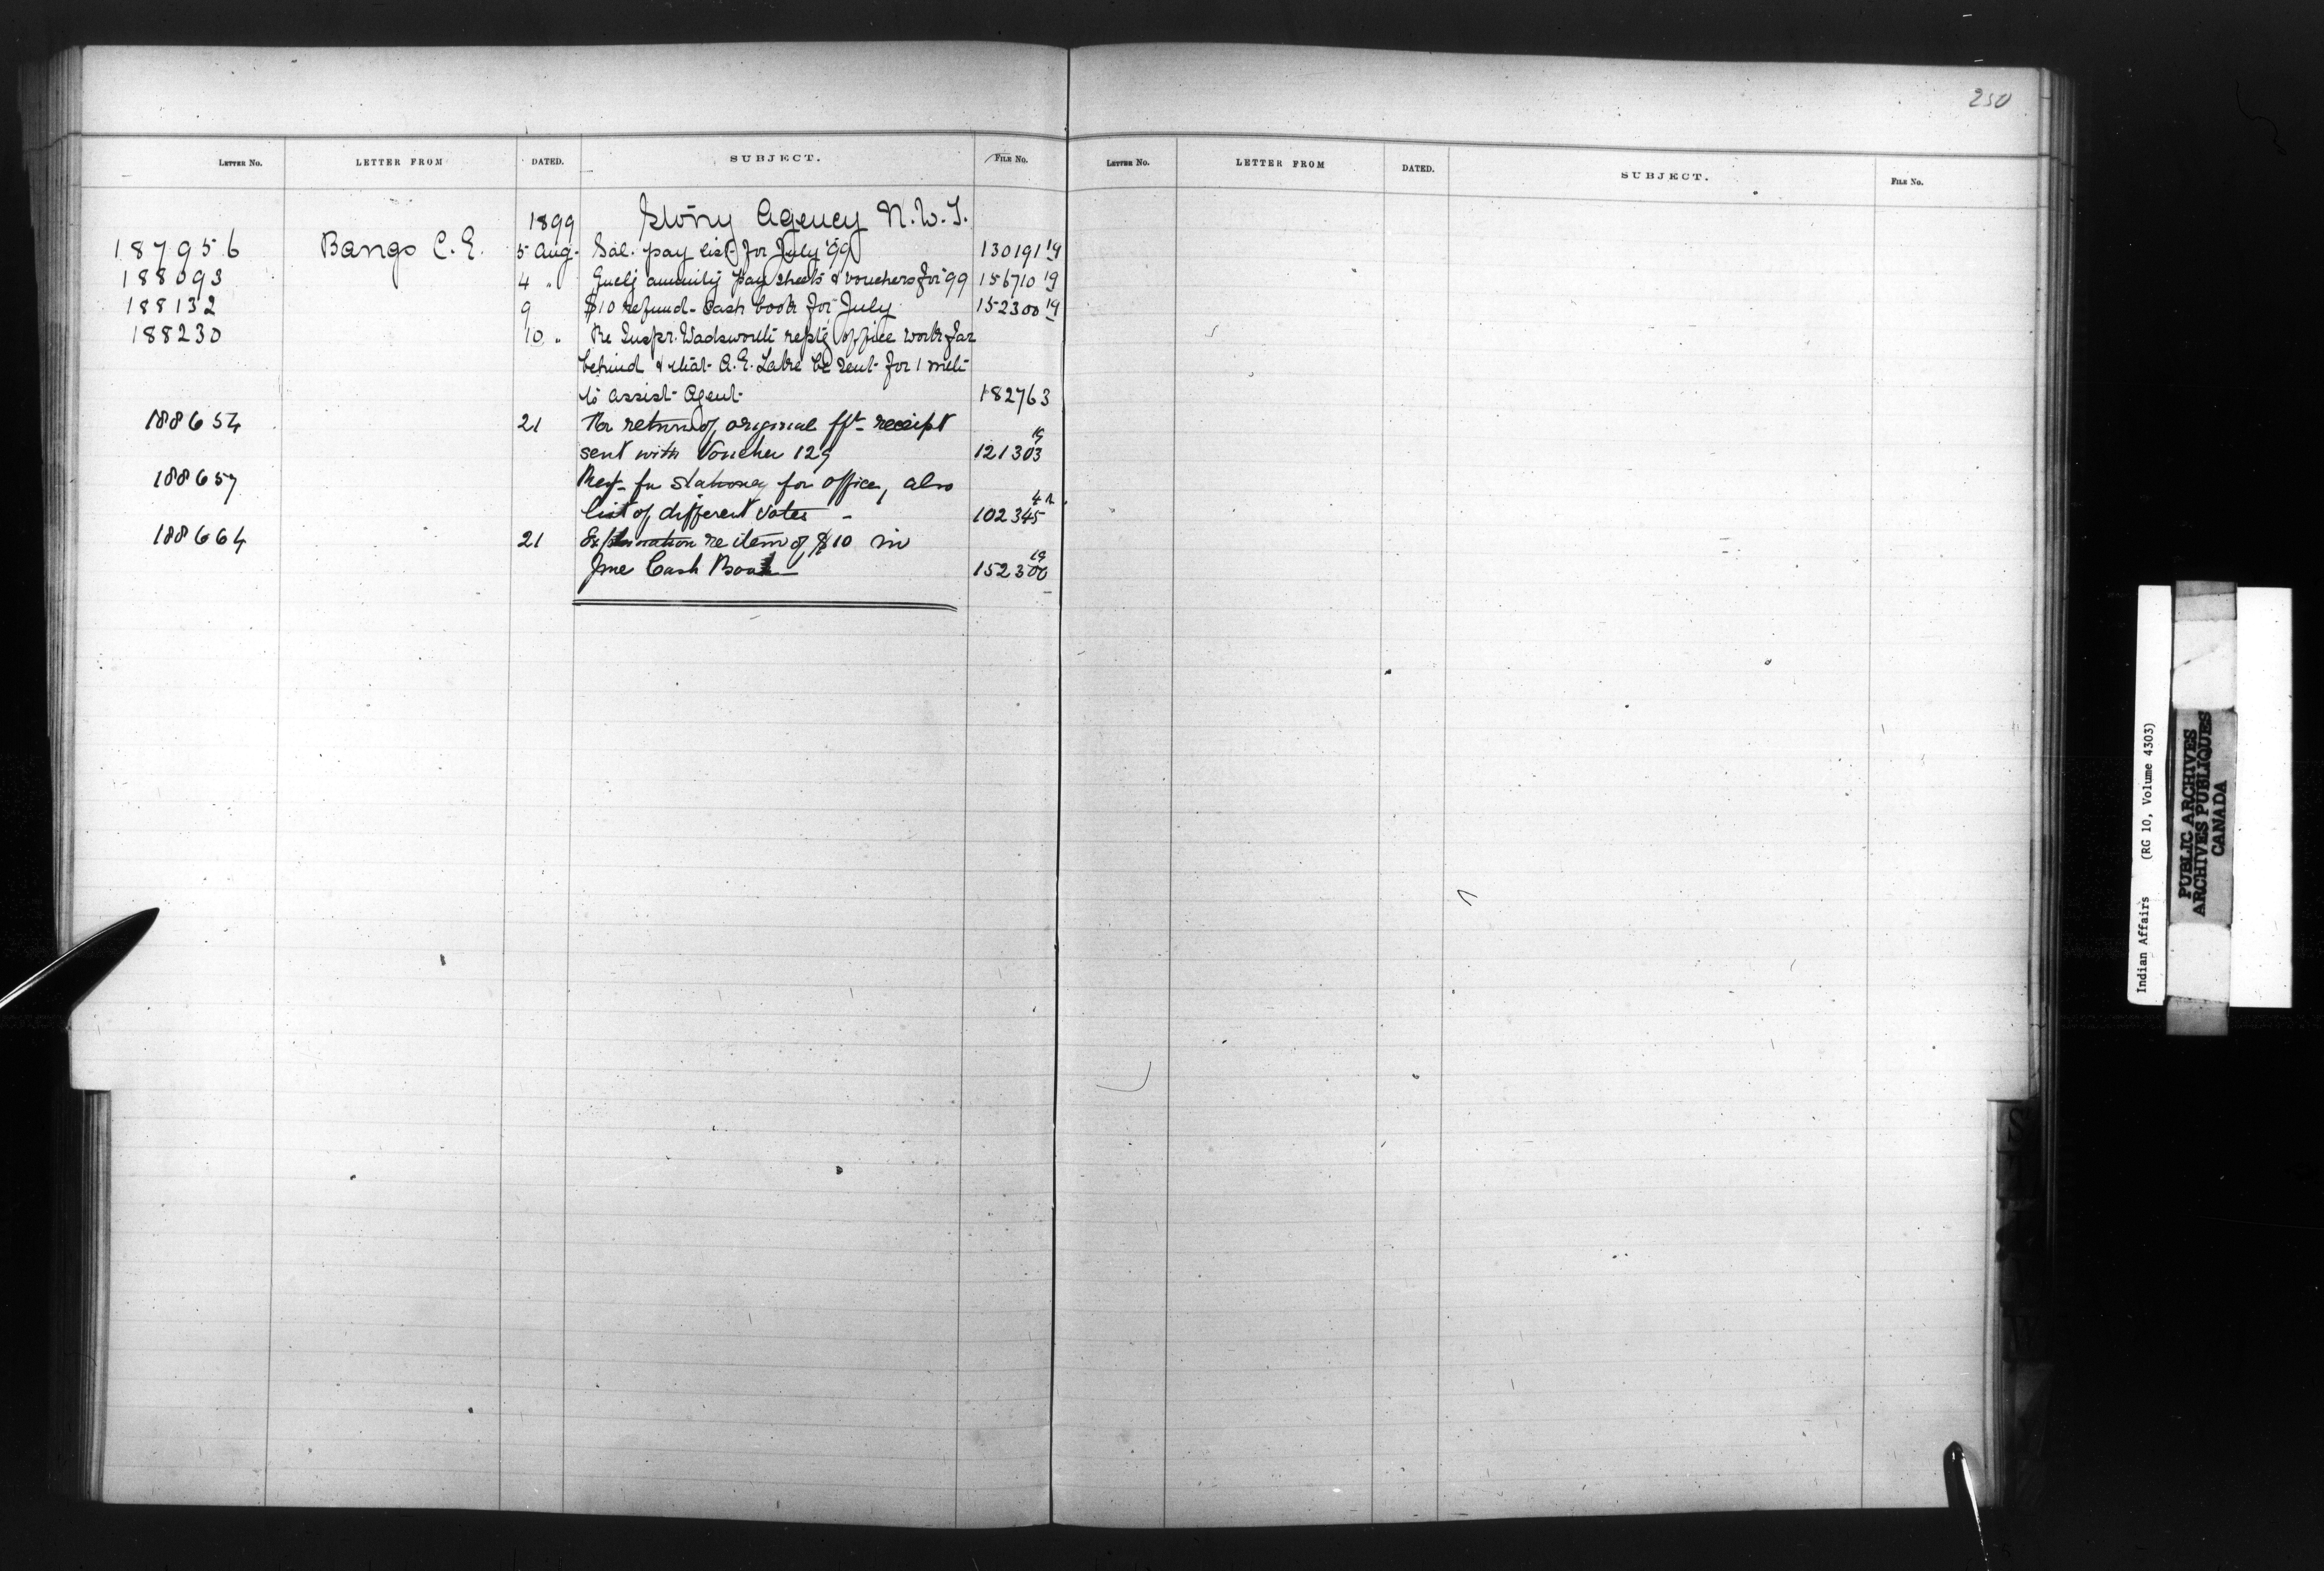 250
LETTER NO. LETTER FROM DATED. SUBJECT. FILE NO. LETTER NO. LETTER FROM DATED. SUBJECT. FILE NO.
1899 Stony Agency N.W.T.
187956 Bangs C. E. 5 Aug. Sal. pay list for July '99 130191 19
188093 4 " annuity pay sheets & vouchers for '99 156710 19
188132 9 $10 refund - Cash book for July 152300 19
188230 10 " Re Inspr. Wadsworth reptg office work far
behind & that A. E. Lake be sent for 1 mth
to assist Agent 182763
188654 21 For return of original frt receipt
sent with Voucher 129 121303 19
188657 Reqt. for stationery for office, also
list of different Votes - 102345
188664 21 Explanation re item of $10 in
June Cash Book 152300 19
Indian Affairs (RG 10, Volume 4303)
PUBLIC ARCHIVES
ARCHIVES PUBLIQUES
CANADA